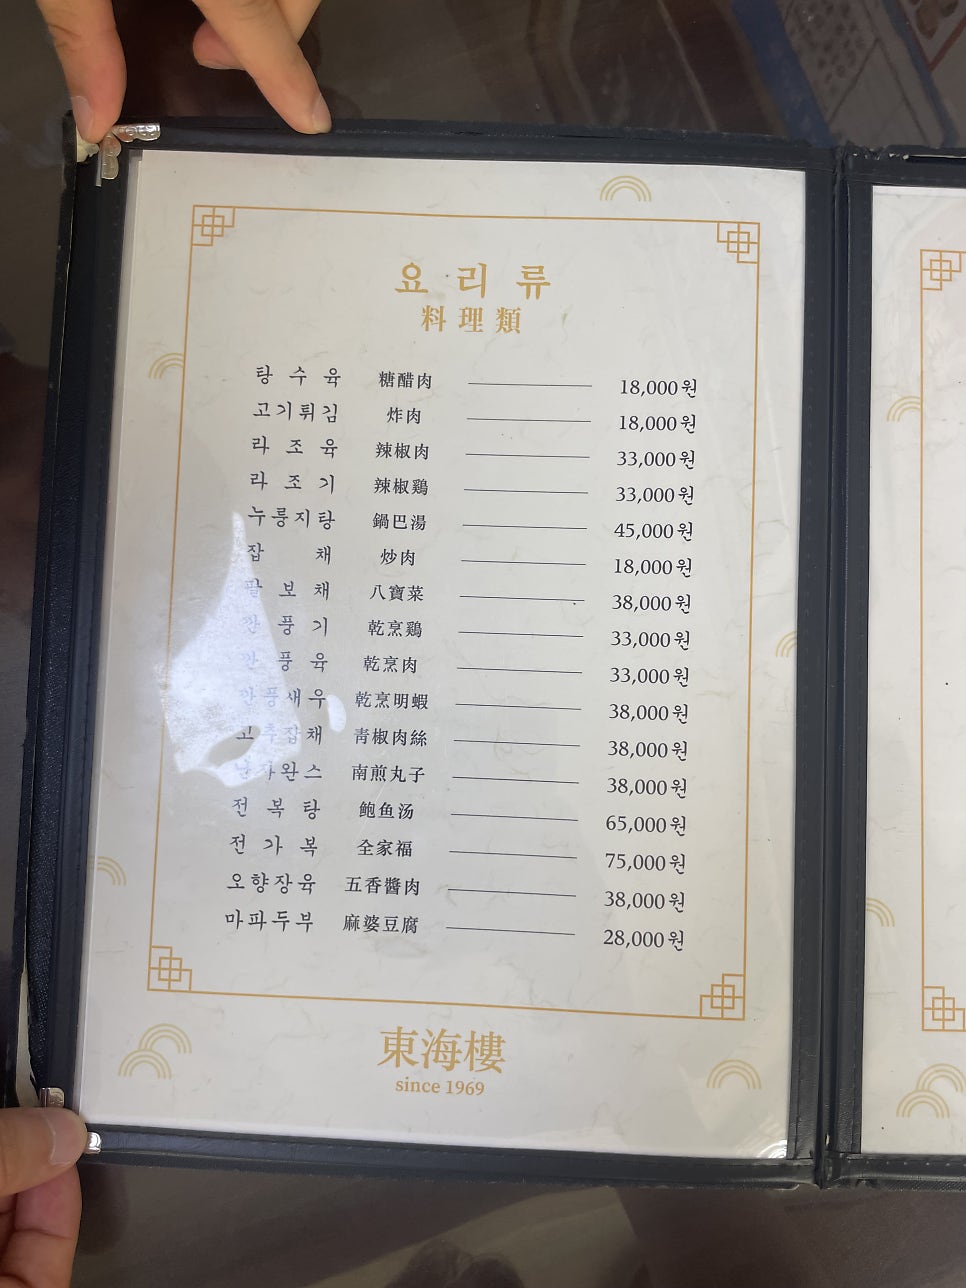 요리류
料理類
탕수육 糖醋肉 18,000원
고기튀김 炸肉 18,000원
라조육 辣椒肉 33,000원
라조기 辣椒鷄 33,000원
누룽지탕 鍋巴湯 45,000원
잡채 炒肉 18,000원
팔보채 八寶菜 38,000원
깐풍기 乾烹鷄 33,000원
깐풍육 乾烹肉 33,000원
깐풍새우 乾烹明蝦 38,000원
고추잡채 青椒肉絲 38,000원
난자완스 南煎丸子 38,000원
전복탕 鲍鱼汤 65,000원
전가복 全家福 75,000원
오향장육 五香醬肉 38,000원
마파두부 麻婆豆腐 28,000원
東海樓
since 1969